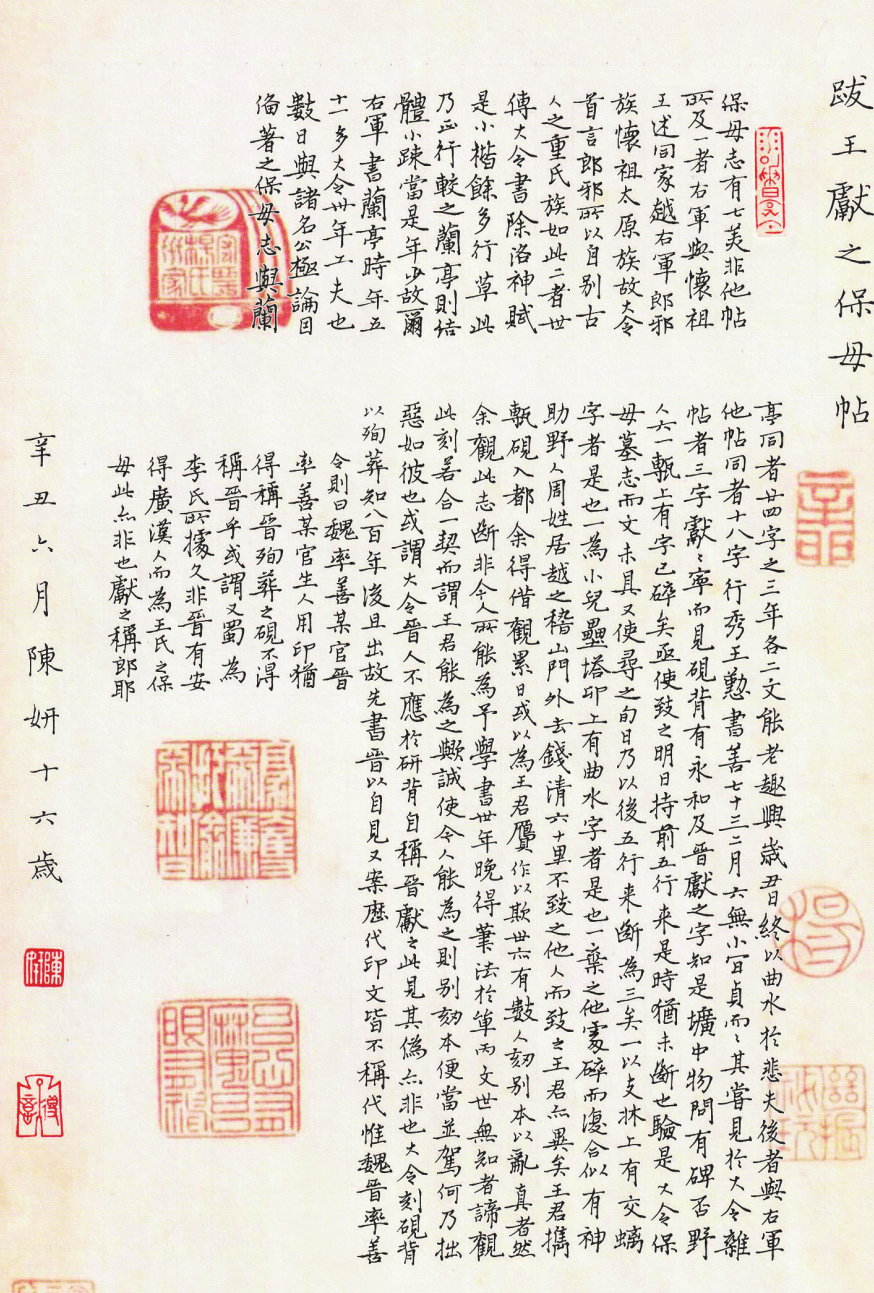 跋王獻之保母帖
保母志有七美非他帖
所及一者右軍與懷祖
王述同家越右軍郎邪
族懷祖太原族故大令
首言郎邪所以自别古
人之重氏族如此二者世
傳大令書除洛神賦
是小楷餘多行草此
乃正行較之蘭亭則結
體小踈當是年少故爾
右軍書蘭亭時年五
十一多大令卅年工夫也
數日與諸名公極論因
備著之保母志與蘭
亭同者廿四字之三年各二文能老趣興歲丑日終以曲水於悲夫後者與右軍
他帖同者十八字行秀王懃書善七十三二月六無小宜貞而〻其嘗見於大令雜
帖者三字獻〻寧而見硯背有永和及晉獻之字知是壙中物問有碑否野
人六一甎上有字已碎矣亟使致之明日持前五行来是時猶未斷也驗是大令保
母墓志而文未具又使尋之旬日乃以後五行来斷為三矣一以支牀上有交螭
字者是也一為小兒壘塔印上有曲水字者是也一棄之他處碎而復合似有神
助野人周姓居越之稽山門外去錢清六十里不致之他人而致之王君亦異矣王君攜
甎硯入都余得借觀累日或以為王君贋作以欺世亦有數人刻别本以亂真者然
余觀此志斷非今人所能為予學書卅年晚得筆法於單丙文世無知者諦觀
此刻若合一契而謂王君能為之歟誠使今人能為之則别刻本便當並駕何乃拙
惡如彼也或謂大令晉人不應於研背自稱晉獻之此見其偽亦非也大令刻硯背
以殉葬知八百年後且出故先書晉以自見又案歷代印文皆不稱代惟魏晉率善
令則曰魏率善某官晉
率善某官生人用印猶
得稱晉殉葬之硯不得
稱晉乎或謂又蜀為
李氏所據久非晉有安
得廣漢人而為王氏之保
母此亦非也獻之稱郎耶
辛丑六月陳妍十六歲
陳妍